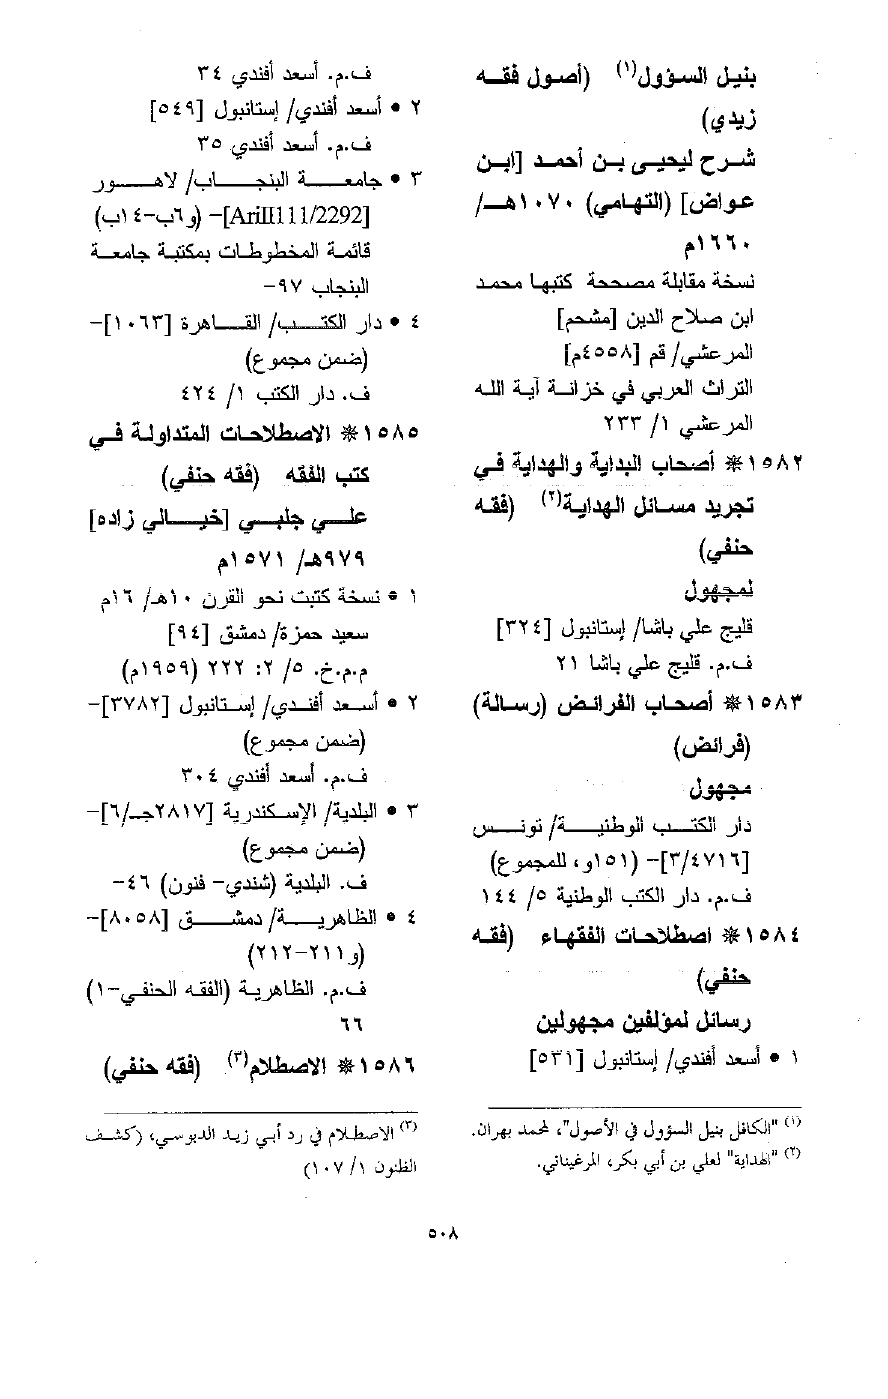 بنيل السؤول(١) (أصول فقه
زيدي)
شرح ليحيى بن أحمد [ابن
عواض] (التهامي) ١٠٧٠هـ/
١٦٦٠م
نسخة مقابلة مصححة كتبها محمد
ابن صلاح الدين [مشحم]
المرعشي/ قم [٤٥٥٨م]
التراث العربي في خزانة آية الله
المرعشي ١/ ٢٣٣
١٥٨٢ * أصحاب البداية والهداية في
تجريد مسائل الهداية(٢) (فقه
حنفي)
لمجهول
قليج علي باشا/ إستانبول [٣٢٤]
ف.م. قليج علي باشا ٢١
١٥٨٣ * أصحاب الفرائض (رسالة)
(فرائض)
مجهول
دار الكتب الوطنية/ تونس
[٣/٤٧١٦]– (١٥١و، للمجموع)
ف.م. دار الكتب الوطنية ٥/ ١٤٤
١٥٨٤ * اصطلاحات الفقهاء (فقه
حنفي)
رسائل لمؤلفين مجهولين
١ • أسعد أفندي/ إستانبول [٥٣١]
ف.م. أسعد أفندي ٣٤
٢ • أسعد أفندي/ إستانبول [٥٤٩]
ف.م. أسعد أفندي ٣٥
٣ • جامعة البنجاب/ لاهور
[AriII111/2292]– (و٦ب–١٤ب)
قائمة المخطوطات بمكتبة جامعة
البنجاب ٩٧–
٤ • دار الكتب/ القاهرة [١٠٦٣]–
(ضمن مجموع)
ف. دار الكتب ١/ ٤٢٤
١٥٨٥ * الاصطلاحات المتداولة في
كتب الفقه (فقه حنفي)
علي جلبي [خيالي زاده]
٩٧٩هـ/ ١٥٧١م
١ • نسخة كتبت نحو القرن ١٠هـ/ ١٦م
سعيد حمزة/ دمشق [٩٤]
م.م.خ. ٥/ ٢: ٢٢٢ (١٩٥٩م)
٢ • أسعد أفندي/ إستانبول [٣٧٨٢]–
(ضمن مجموع)
ف.م. أسعد أفندي ٣٠٤
٣ • البلدية/ الإسكندرية [٢٨١٧جـ/٦]–
(ضمن مجموع)
ف. البلدية (شندي– فنون) ٤٦–
٤ • الظاهرية/ دمشق [٨٠٥٨]–
(و٢١١–٢١٢)
ف.م. الظاهرية (الفقه الحنفي–١)
٦٦
١٥٨٦ * الاصطلام(٣) (فقه حنفي)
(١) "الكافل بنيل السؤول في الأصول"، لمحمد بهران.
(٢) "الهداية" لعلي بن أبي بكر، المرغيناني.
(٣) الاصطلام في رد أبي زيد الدبوسي، (كشف
الظنون ١/ ١٠٧)
٥٠٨